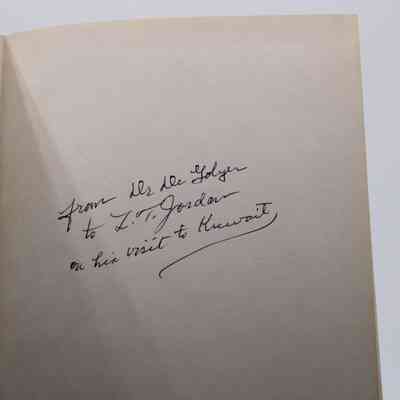 from Dr De Golyer
to L.T. Jordan
on his visit to Kuwait